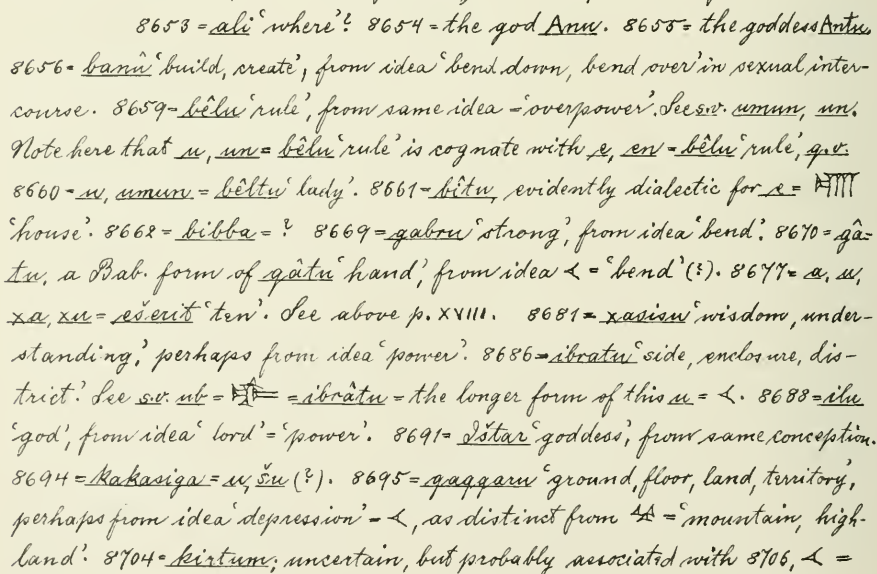 8653 = ali 'where'? 8654 = the god Anu. 8655 = the goddess Antu.
8656 = banû 'build, create', from idea 'bend down, bend over' in sexual inter-
course. 8659 = bêlu 'rule', from same idea = 'overpower'. See s.v. umun, un.
Note here that u, un = bêlu 'rule' is cognate with e, en = bêlu 'rule', q.v.
8660 = u, umun = bêltu 'lady'. 8661 = bîtu, evidently dialectic for e = 𒂍
'house'. 8662 = bibba = ? 8669 = gabru 'strong', from idea 'bend'. 8670 = gâ-
tu, a Bab. form of qâtu 'hand', from idea 𒌋 = 'bend' (?). 8677 = a, u,
xa, xu = ešerit 'ten'. See above p. XVIII. 8681 = xasisu 'wisdom, under-
standing,' perhaps from idea 'power'. 8686 = ibratu 'side, enclosure, dis-
trict'. See s.v. ub = = ibrâtu = the longer form of this u = 𒌋. 8688 = ilu
'god', from idea 'lord' = 'power'. 8691 = Ištar 'goddess', from same conception.
8694 = kakasiga = u, šu (?). 8695 = qaqqaru 'ground, floor, land, territory',
perhaps from idea 'depression' = 𒌋, as distinct from 𒆳 = 'mountain, high-
land'. 8704 = kirtum; uncertain, but probably associated with 8706, 𒌋 =